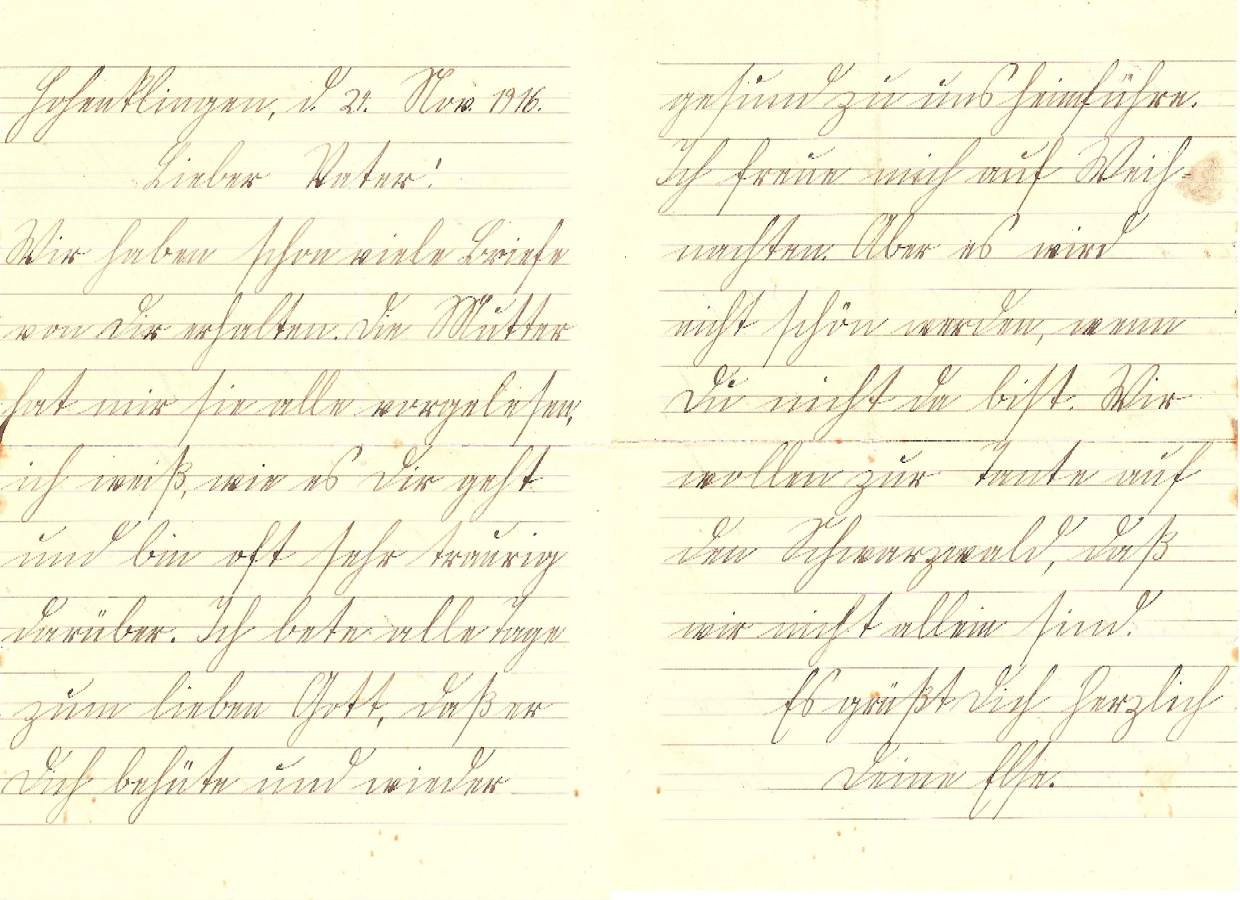 Hohenklingen, d. 21. Nov. 1916.
Lieber Vater!
Wir haben schon viele Briefe
von Dir erhalten. Die Mutter
hat mir sie alle vorgelesen,
ich weiß, wie es Dir geht
und bin oft sehr traurig
darüber. Ich bete alle Tage
zum lieben Gott, daß er
Dich behüte und wieder
gesund zu uns heimführe.
Ich freue mich auf Weih-
nachten. Aber es wird
nicht schön werden, wenn
Du nicht da bist. Wir
wollen zur Tante auf
den Schwarzwald, daß
wir nicht allein sind.
Es grüßt Dich herzlich
Deine Else.